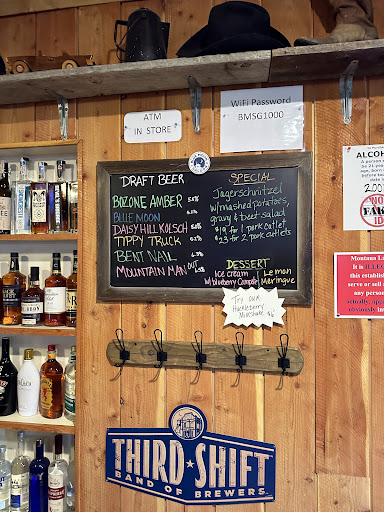 ATM
IN STORE
WiFi Password
BMSG1000
DRAFT BEER
BOZONE AMBER
BLUE MOON
DAISY HILL KOLSCH
TIPPY TRUCK
BENT NAIL
MOUNTAIN MAN
SPECIAL
Jagerschnitzel
w/mashed potatoes,
gravy & beet salad
$19 for 1 pork cutlet
$23 for 2 pork cutlets
DESSERT
Ice cream
w/blueberry Compote
Lemon
Meringue
Try our
Huckleberry
Milkshake $6
ALCOHO
NO
FAKE
ID
Montana La
It is ILLEG
this establis
serve or sell
any person
actually, appa
obviously in
THIRD SHIFT
BAND OF BREWERS